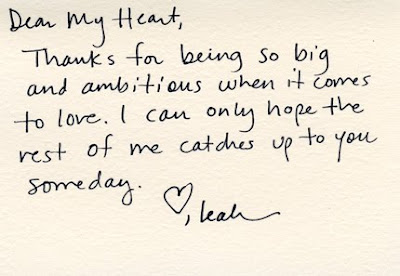 Dear My Heart,
Thanks for being so big
and ambitious when it comes
to love. I can only hope the
rest of me catches up to you
someday.
♡, leah